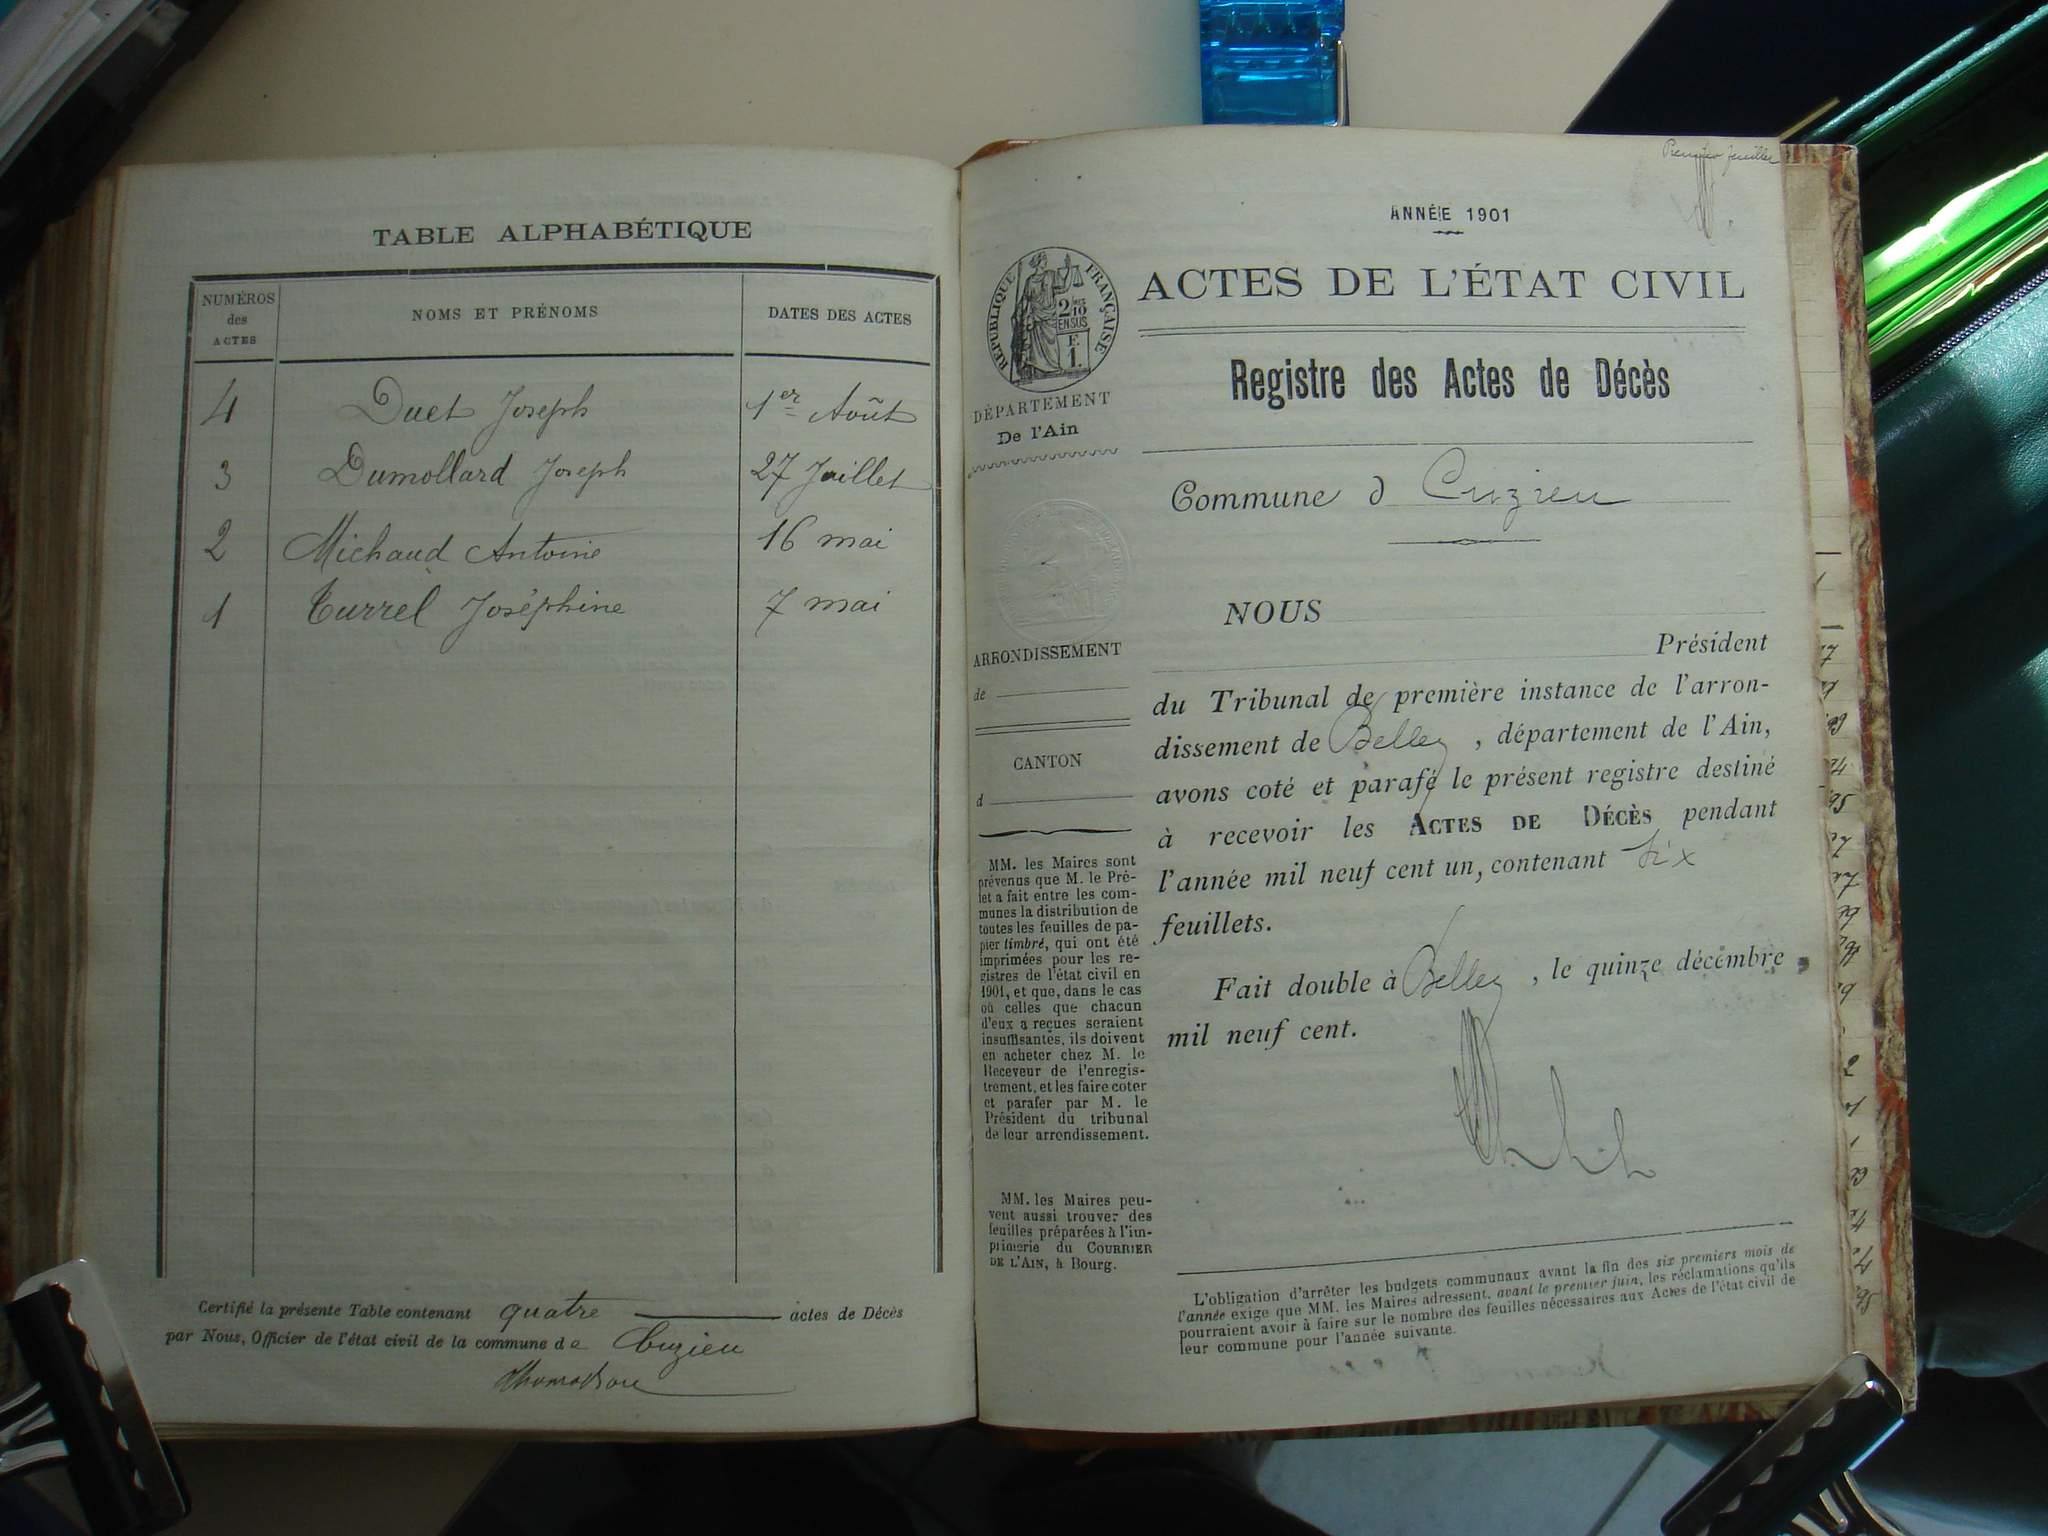 TABLE ALPHABÉTIQUE
NUMÉROS des ACTES NOMS ET PRÉNOMS DATES DES ACTES
4 Duet Joseph 1er Août
3 Dumollard Joseph 27 Juillet
2 Michaud Antoine 16 mai
1 Turrel Joséphine 7 mai
Certifié la présente Table contenant quatre actes de Décès
par Nous, Officier de l'état civil de la commune de Cuzieu
Premier feuillet
ANNÉE 1901
RÉPUBLIQUE FRANÇAISE
2/10
EN SUS
E
1.
ACTES DE L'ÉTAT CIVIL
Registre des Actes de Décès
DÉPARTEMENT
De l'Ain
Commune d Cuzieu
ARRONDISSEMENT
de
CANTON
d
MM. les Maires sont
prévenus que M. le Pré-
fet a fait entre les com-
munes la distribution de
toutes les feuilles de pa-
pier timbré, qui ont été
imprimées pour les re-
gistres de l'état civil en
1901, et que, dans le cas
où celles que chacun
d'eux a reçues seraient
insuffisantes, ils doivent
en acheter chez M. le
Receveur de l'enregis-
trement, et les faire coter
et parafer par M. le
Président du tribunal
de leur arrondissement.
MM. les Maires peu-
vent aussi trouver des
feuilles préparées à l'im-
primerie du COURRIER
DE L'AIN, à Bourg.
NOUS
Président
du Tribunal de première instance de l'arron-
dissement de Belley, département de l'Ain,
avons coté et parafé le présent registre destiné
à recevoir les ACTES DE DÉCÈS pendant
l'année mil neuf cent un, contenant six
feuillets.
Fait double à Belley, le quinze décembre
mil neuf cent.
L'obligation d'arrêter les budgets communaux avant la fin des six premiers mois de
l'année exige que MM. les Maires adressent, avant le premier juin, les réclamations qu'ils
pourraient avoir à faire sur le nombre des feuilles nécessaires aux Actes de l'état civil de
leur commune pour l'année suivante.